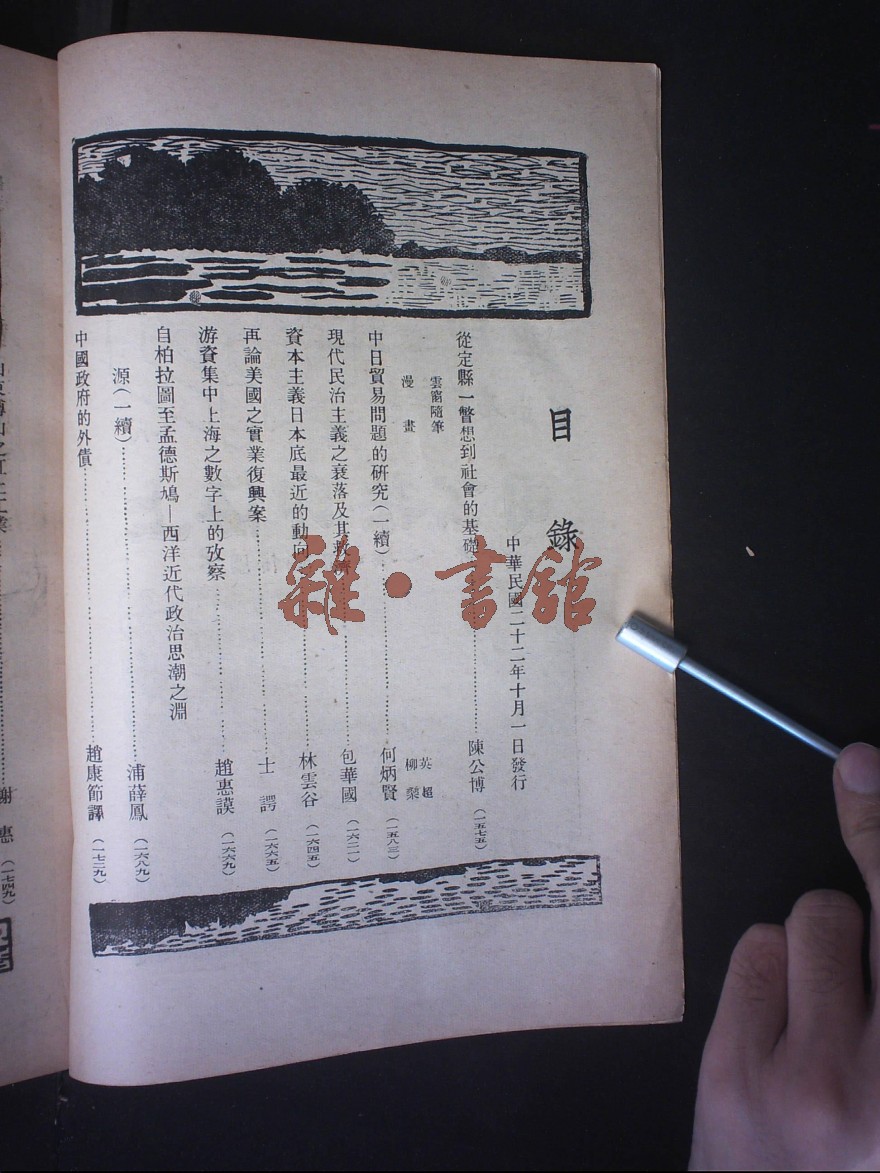 目錄
中華民國二十二年十月一日發行
從定縣一瞥想到社會的基礎 陳公博 (一五七五)
雲窗隨筆 英超
漫畫 柳槳
中日貿易問題的研究(一續) 何炳賢 (一五八三)
現代民治主義之衰落及其救 包華國 (一六二一)
資本主義日本底最近的動向 林雲谷 (一六四五)
再論美國之實業復興案 士諤 (一六六五)
游資集中上海之數字上的攷察 趙惠謨 (一六六九)
自柏拉圖至孟德斯鳩—西洋近代政治思潮之淵
源(一續) 浦薛鳳 (一六八九)
中國政府的外債 趙康節譯 (一七二九)
謝惠 (一七四九)
雜·書館